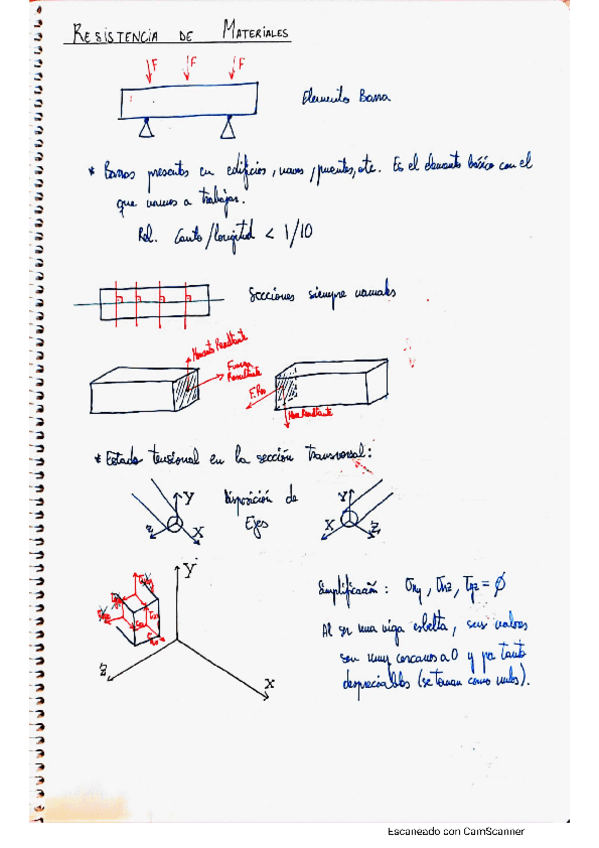 RESISTENCIA DE MATERIALES
F F F
Elemento Barra
* Barras presentes en edificios, naves, puentes, etc. Es el elemento básico con el
que vamos a trabajar.
Rel. Canto/longitud < 1/10
Secciones siempre normales
Momento Resultante
Fuerza
Resultante
F. Res
Mom Resultante
* Estado tensional en la sección transversal:
Y Z X
Disposición de
Ejes
Y X Z
Y
Z
X
Simplificación: = ∅
Al ser una viga esbelta, sus valores
son muy cercanos a 0 y por tanto
despreciables (se toman como nulos).
Escaneado con CamScanner